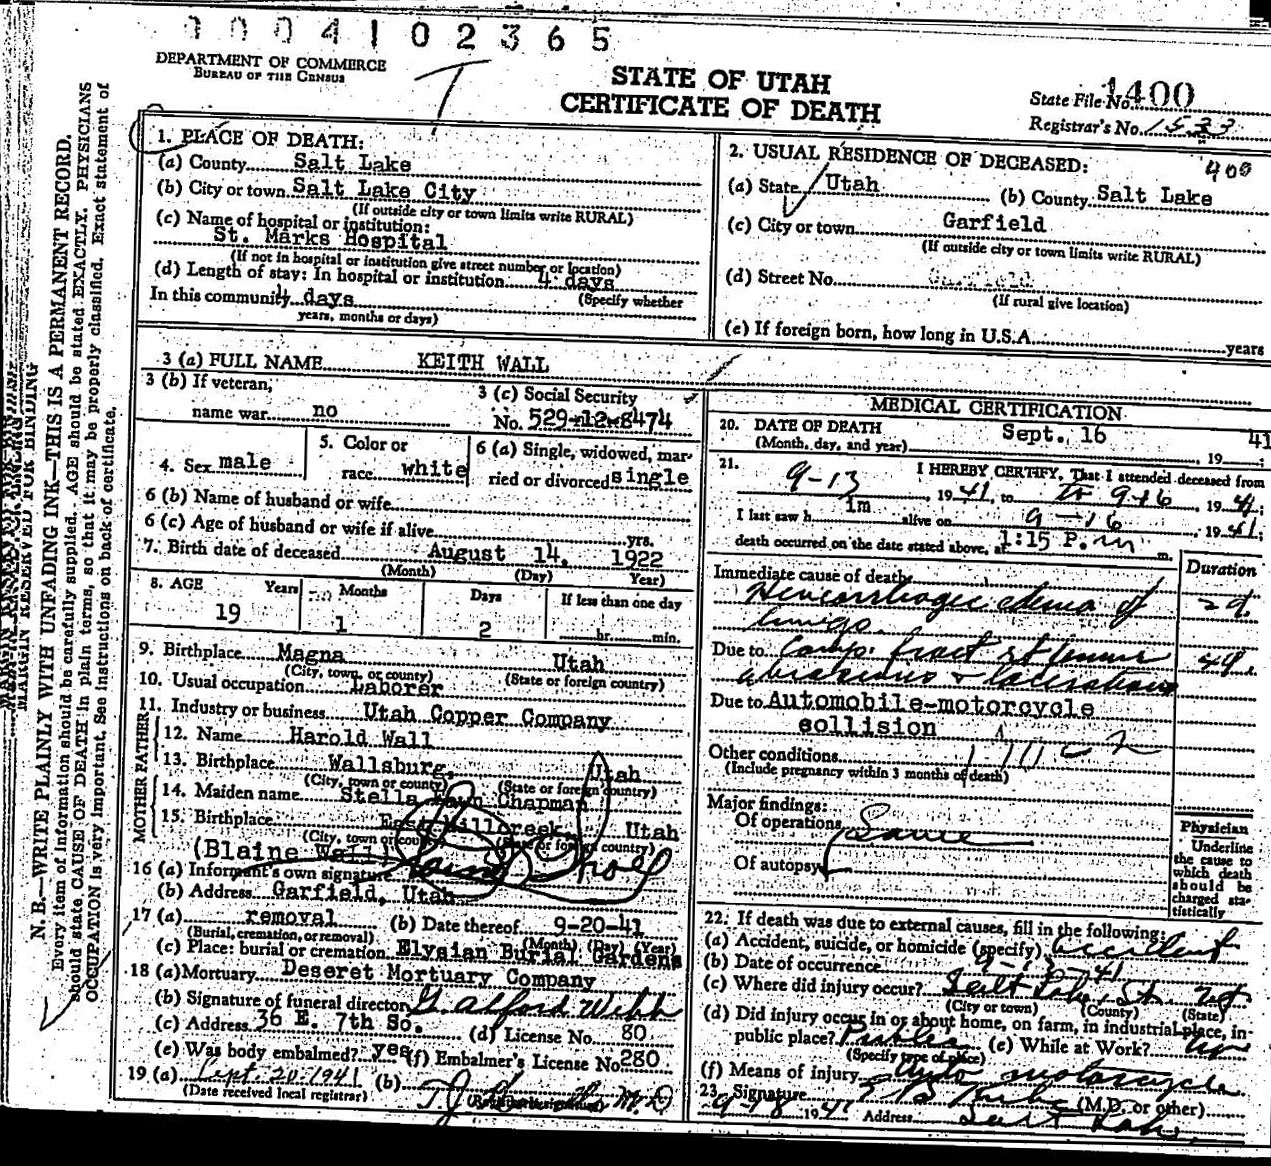 0004102365
DEPARTMENT OF COMMERCE
BUREAU OF THE CENSUS
STATE OF UTAH
CERTIFICATE OF DEATH
State File No. 1400
Registrar's No. 1533
N. B.—WRITE PLAINLY WITH UNFADING INK—THIS IS A PERMANENT RECORD.
Every item of information should be carefully supplied. AGE should be stated EXACTLY. PHYSICIANS
should state CAUSE OF DEATH in plain terms, so that it may be properly classified. Exact statement of
OCCUPATION is very important. See instructions on back of certificate.
MARGIN RESERVED FOR BINDING
1. PLACE OF DEATH:
(a) County Salt Lake
(b) City or town Salt Lake City
(If outside city or town limits write RURAL)
(c) Name of hospital or institution:
St. Marks Hospital
(If not in hospital or institution give street number or location)
(d) Length of stay: In hospital or institution 4 days
(Specify whether
In this community 4 days
years, months or days)
2. USUAL RESIDENCE OF DECEASED: 400
(a) State Utah (b) County Salt Lake
(c) City or town Garfield
(If outside city or town limits write RURAL)
(d) Street No. Garfield
(If rural give location)
(e) If foreign born, how long in U.S.A. years
3 (a) FULL NAME KEITH WALL
3 (b) If veteran,
name war no
3 (c) Social Security
No. 529-12-8474
4. Sex male
5. Color or
race white
6 (a) Single, widowed, mar-
ried or divorced single
6 (b) Name of husband or wife
6 (c) Age of husband or wife if alive yrs.
7. Birth date of deceased August 14, 1922
(Month) (Day) Year)
8. AGE Years Months Days If less than one day
19 1 2 hr. min.
9. Birthplace Magna Utah
(City, town, or county) (State or foreign country)
10. Usual occupation Laborer
11. Industry or business Utah Copper Company
MOTHER FATHER
12. Name Harold Wall
13. Birthplace Wallsburg, Utah
(City, town or county) (State or foreign country)
14. Maiden name Stella Chapman
15. Birthplace East Millcreek, Utah
(City, town or county) (State or foreign country)
(Blaine Wall)
16 (a) Informant's own signature
(b) Address Garfield, Utah
17 (a) removal (b) Date thereof 9-20-41
(Burial, cremation, or removal) (Month) (Day) (Year)
(c) Place: burial or cremation Elysian Burial Gardens
18 (a) Mortuary Deseret Mortuary Company
(b) Signature of funeral director G. Alford Webb
(c) Address 36 E. 7th So. (d) License No. 80
(e) Was body embalmed? yes (f) Embalmer's License No. 280
19 (a) Sept. 20-1941 (b) M.D
(Date received local registrar)
MEDICAL CERTIFICATION
20. DATE OF DEATH Sept. 16 41
(Month, day, and year) , 19 ;
21. I HEREBY CERTIFY, That I attended deceased from
9-13, 1941, to to 9-16, 1941;
I last saw h im alive on 9-16, 1941;
death occurred on the date stated above, at 1:15 P.m m.
Immediate cause of death Duration
Hemorrhagic edema of 2 d.
lungs.
Due to Comp. fract rt femur 4 d.
abrasions & lacerations
Due to Automobile-motorcycle
collision
Other conditions
(Include pregnancy within 3 months of death)
Major findings:
Of operations Same
Of autopsy
Physician
Underline
the cause to
which death
should be
charged sta-
tistically
22. If death was due to external causes, fill in the following:
(a) Accident, suicide, or homicide (specify) accident
(b) Date of occurrence 9-13-41
(c) Where did injury occur? Salt Lake, Ut
(City or town) (County) (State)
(d) Did injury occur in or about home, on farm, in industrial place, in
public place? Public (e) While at Work? no
(Specify type of place)
(f) Means of injury Auto motorcycle
23. Signature (M.D. or other)
9-18, 1941 Address Salt Lake,